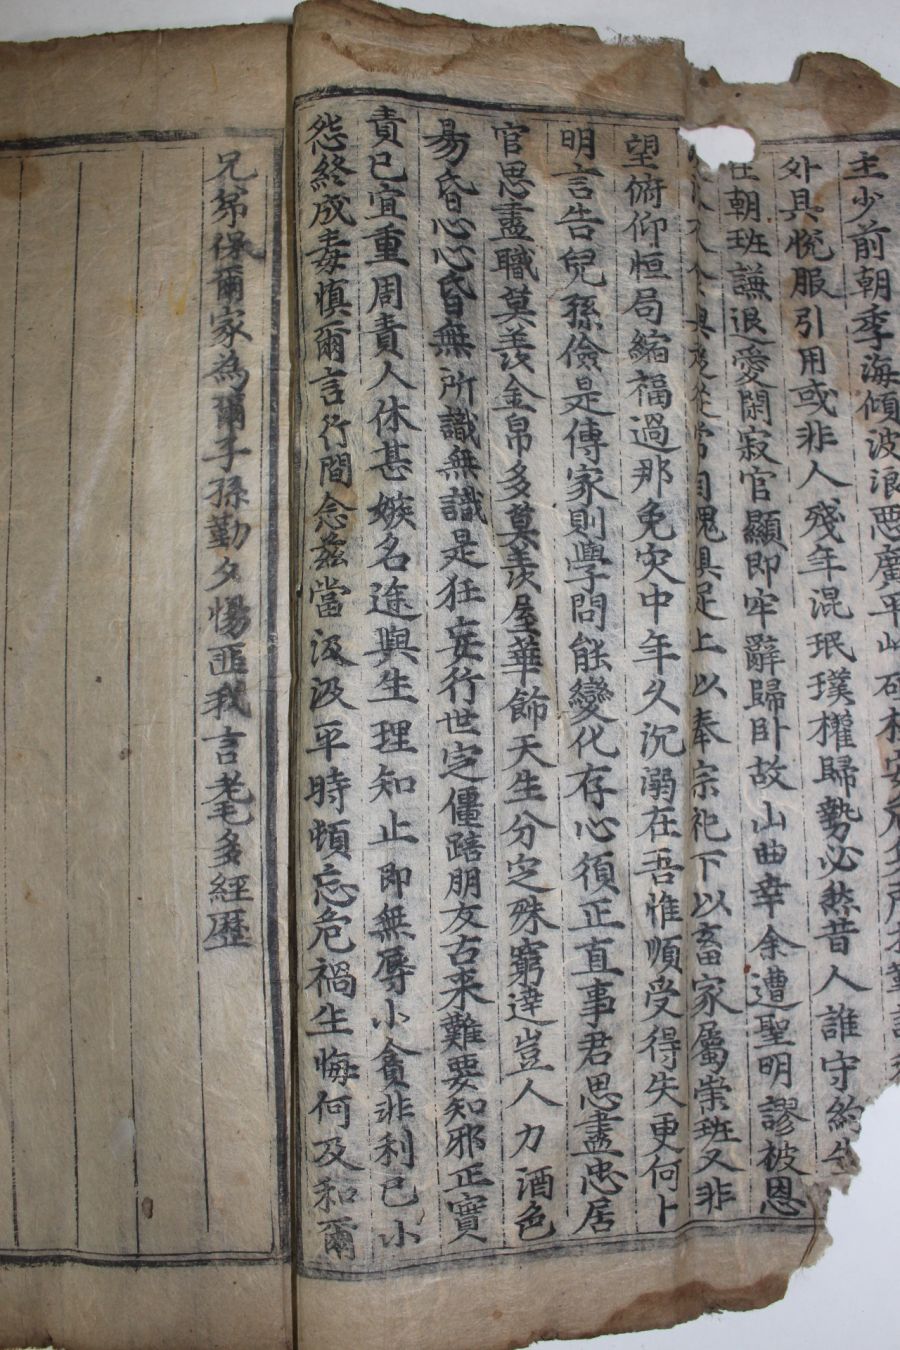 主少前朝季海傾波浪悪廣平
外具悅服引用或非人殘年混珉璞權歸勢必然昔人誰守約
在朝班謙退愛閑寂官顯即牢辭歸卧故山曲幸余遭聖明謬被恩
上以奉宗祀下以畜家屬崇班又非
望俯仰恒局縮福過那免灾中年久沉溺在吾惟順受得失更何卜
明言告兒孫儉是傳家則學問能變化存心須正直事君思盡忠居
官思盡職莫羨金帛多莫羨屋華飾天生分定殊窮達豈人力酒色
易昏心心昏無所識無識是狂妄行世㝎僵踣朋友古来難要知邪正實
責己宜重周責人休甚嫉名途與生理知止即無辱小貪非利己小
怨終成毒慎爾言行間念茲當汲汲平時頓忘危禍生悔何及和爾
兄弟保爾家為爾子孫勤夕惕匪我言老毛多經歷